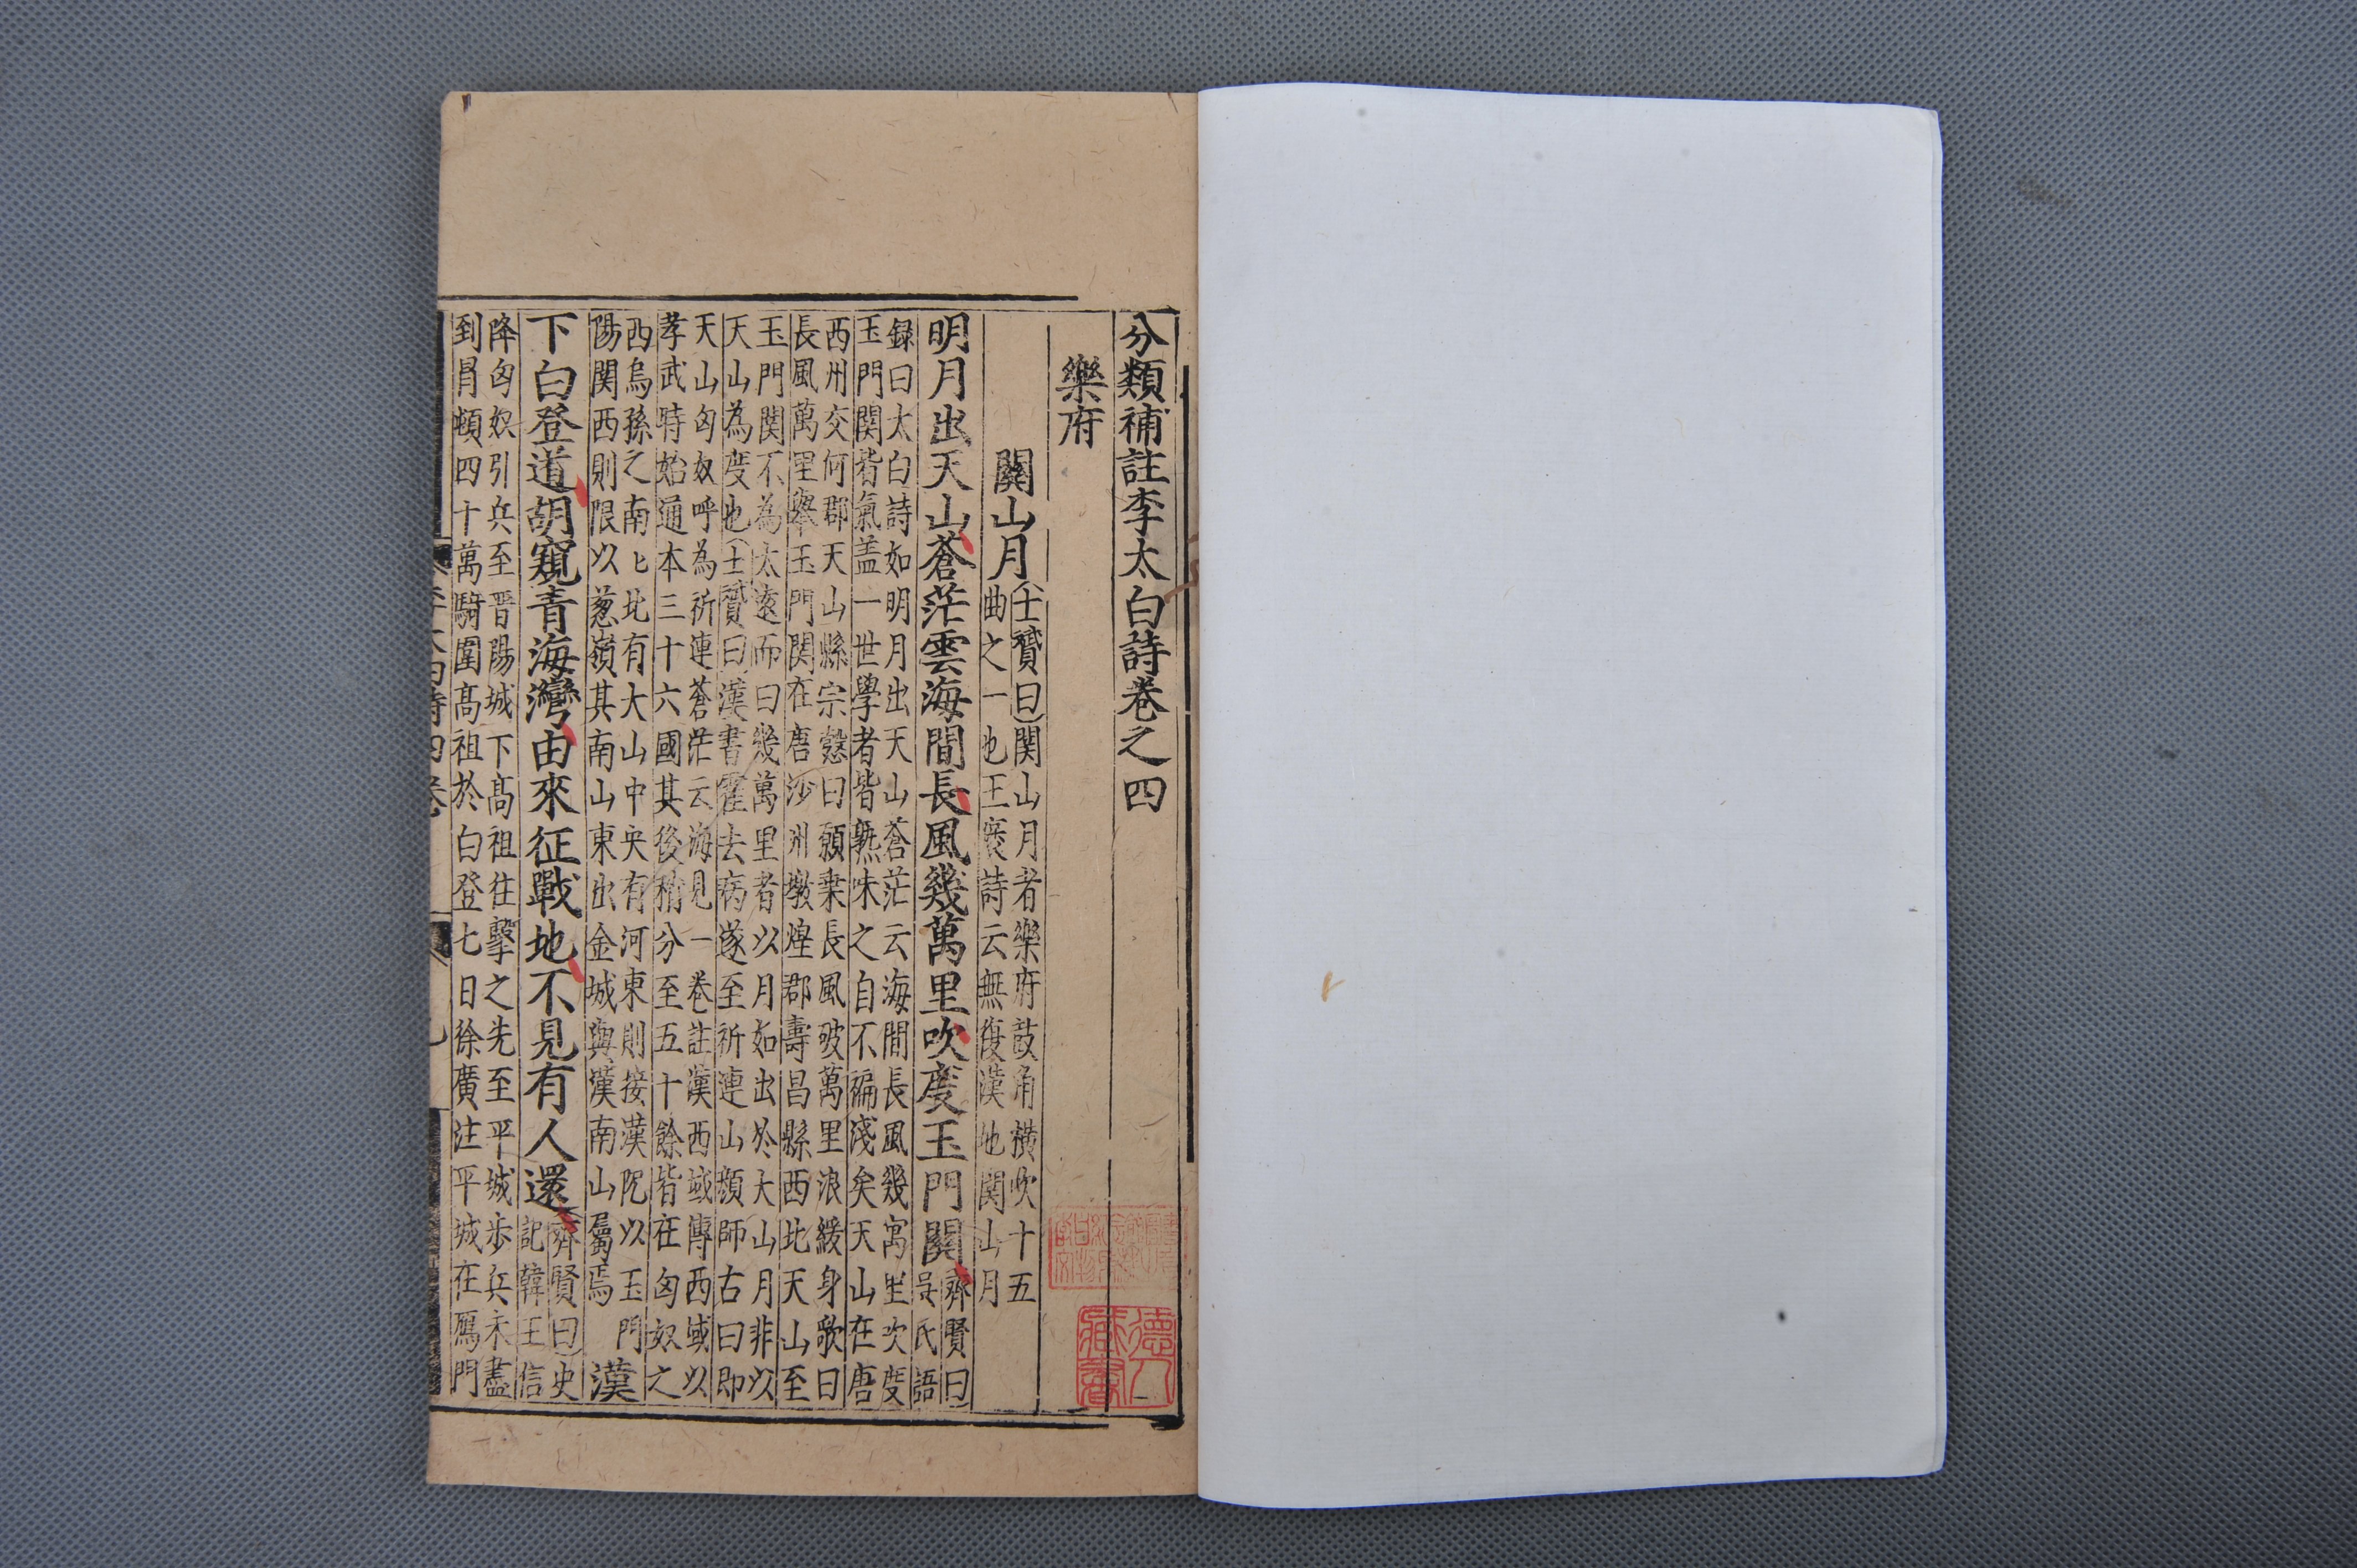 分類補註李太白詩卷之四
樂府
關山月
士贇曰関山月者樂府鼓角横吹十五
曲之一也王褒詩云無復漢地関山月
明月出天山蒼茫雲海間長風幾萬里吹度玉門關
齊賢曰
吳氏語
録曰太白詩如明月出天山蒼茫云海間長風幾萬里吹度
玉門関皆氣盖一世學者皆熟味之自不褊淺矣天山在唐
西州交何郡天山縣宗愨曰願乗長風破萬里浪緩身歌曰
長風萬里舉玉門関在唐沙州墩煌郡壽昌縣西北天山至
玉門関不為太遠而曰幾萬里者以月如出於大山月非以
天山為度也士贇曰漢書霍去病遂至祈連山顔師古曰即
天山匈奴呼為祈連蒼茫云海見一卷註漢西域傳西域以
孝武時始通本三十六國其後稍分至五十餘皆在匈奴之
西烏孫之南匕北有大山中央有河東則接漢阨以玉門
陽関西則限以葱嶺其南山東出金城與漢南山屬焉
漢
下白登道胡窺青海灣由來征戰地不見有人還
齊賢曰史
記韓王信
降匈奴引兵至晋陽城下高祖往擊之先至平城步兵未盡
到冒頓四十萬騎圍高祖於白登七日徐廣注平城在鴈門